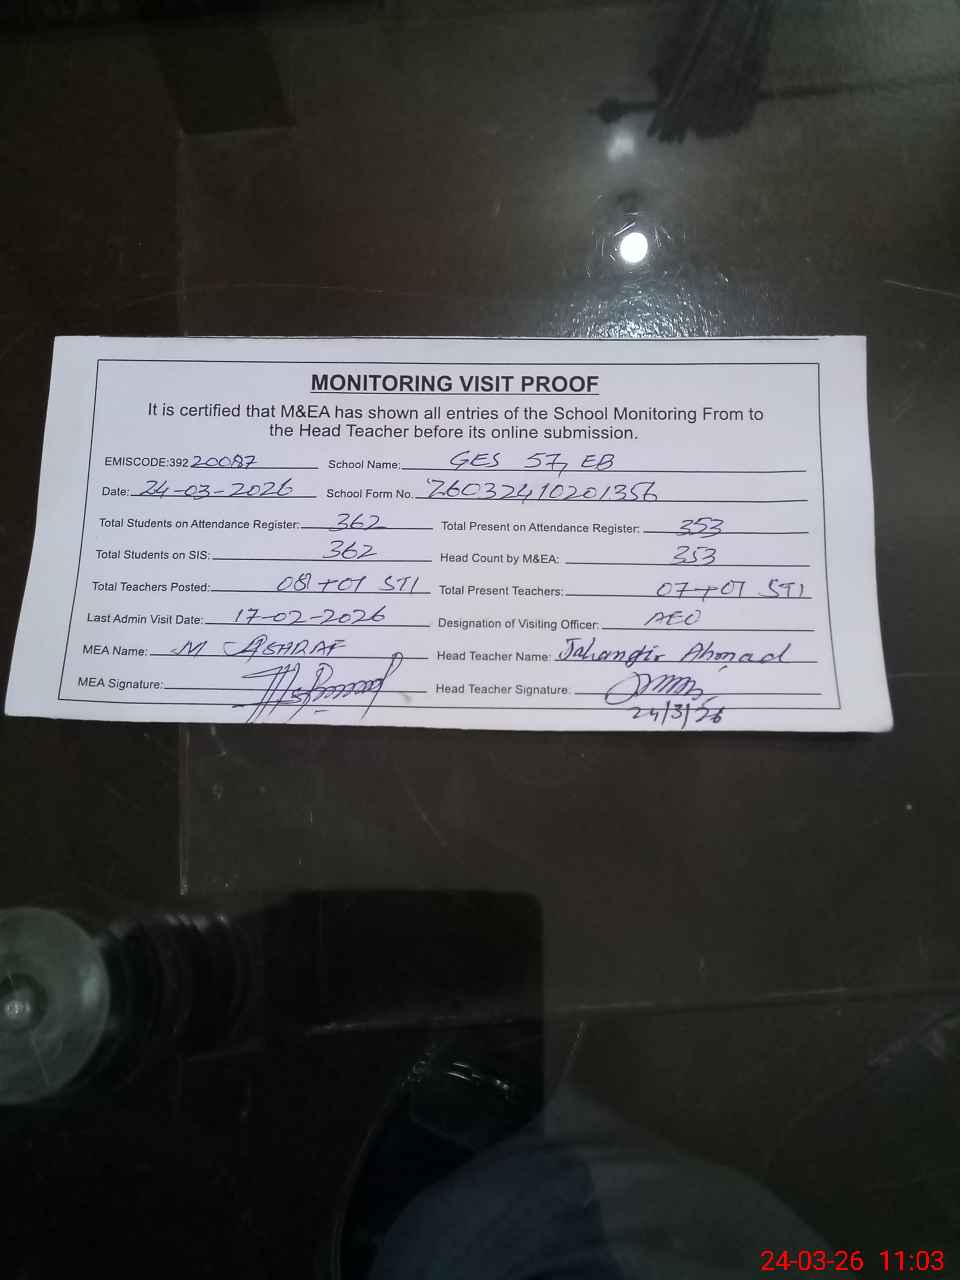 MONITORING VISIT PROOF
It is certified that M&EA has shown all entries of the School Monitoring From to
the Head Teacher before its online submission.
EMISCODE:392 20087 School Name: GES 57, EB
Date: 24-03-2026 School Form No. 26032410201356
Total Students on Attendance Register: 362 Total Present on Attendance Register: 353
Total Students on SIS: 362 Head Count by M&EA: 353
Total Teachers Posted: 08+01 STI Total Present Teachers: 07+01 STI
Last Admin Visit Date: 17-02-2026 Designation of Visiting Officer: AEO
MEA Name: M ASHRAF Head Teacher Name: Jahangir Ahmad
MEA Signature: Head Teacher Signature:
24/3/26
24-03-26 11:03